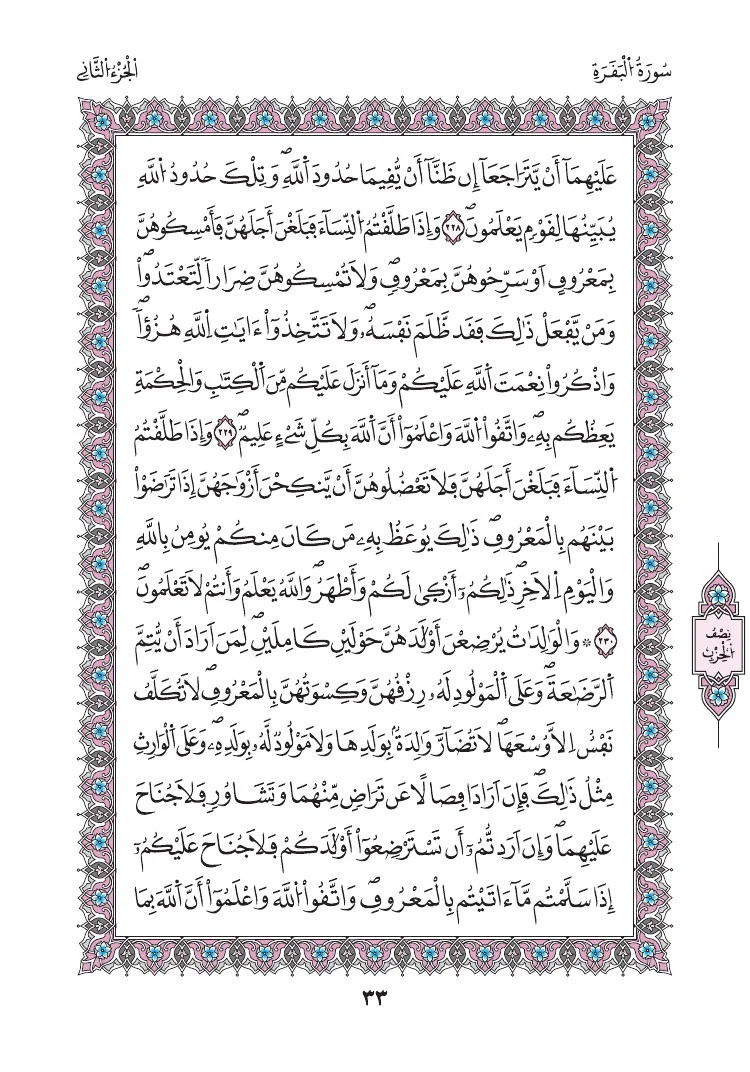 سُورَةُ الْبَقَرَةِ
الْجُزْءُ الثَّانِي
عَلَيْهِمَآ أَنْ يَّتَرَاجَعَآ إِن ظَنَّآ أَنْ يُّقِيمَا حُدُودَ اَللَّهِۖ وَتِلْكَ حُدُودُ اُللَّهِ
يُبَيِّنُهَا لِقَوْمٖ يَعْلَمُونَۖ ٢٢٨ وَإِذَا طَلَّقْتُمُ اُلنِّسَآءَ فَبَلَغْنَ أَجَلَهُنَّ فَأَمْسِكُوهُنَّ
بِمَعْرُوفٍ اَوْ سَرِّحُوهُنَّ بِمَعْرُوفٖۖ وَلَا تُمْسِكُوهُنَّ ضِرَاراٗ لِّتَعْتَدُواْۖ
وَمَنْ يَّفْعَلْ ذَٰلِكَ فَقَد ظَّلَمَ نَفْسَهُۥۖ وَلَا تَتَّخِذُوٓاْ ءَايَٰتِ اِللَّهِ هُزُؤاٗۖ
وَاذْكُرُواْ نِعْمَتَ اَللَّهِ عَلَيْكُمْ وَمَآ أَنزَلَ عَلَيْكُم مِّنَ اَلْكِتَٰبِ وَالْحِكْمَةِ
يَعِظُكُم بِهِۦۖ وَاتَّقُواْ اُللَّهَ وَاعْلَمُوٓاْ أَنَّ اَللَّهَ بِكُلِّ شَےْءٍ عَلِيمٞۖ ٢٢٩ وَإِذَا طَلَّقْتُمُ
اُلنِّسَآءَ فَبَلَغْنَ أَجَلَهُنَّ فَلَا تَعْضُلُوهُنَّ أَنْ يَّنكِحْنَ أَزْوَٰجَهُنَّ إِذَا تَرَٰضَوْاْ
بَيْنَهُم بِالْمَعْرُوفِۖ ذَٰلِكَ يُوعَظُ بِهِۦ مَن كَانَ مِنكُمْ يُومِنُ بِاللَّهِ
وَالْيَوْمِ اِلَاخِرِۖ ذَٰلِكُمُۥٓ أَزْكَىٰ لَكُمْ وَأَطْهَرُۖ وَاللَّهُ يَعْلَمُ وَأَنتُمْ لَا تَعْلَمُونَۖ
٢٣٠ ۞ وَالْوَٰلِدَٰتُ يُرْضِعْنَ أَوْلَٰدَهُنَّ حَوْلَيْنِ كَامِلَيْنِۖ لِمَنَ اَرَادَ أَنْ يُّتِمَّ
اَلرَّضَٰعَةَۖ وَعَلَى اَلْمَوْلُودِ لَهُۥ رِزْقُهُنَّ وَكِسْوَتُهُنَّ بِالْمَعْرُوفِۖ لَا تُكَلَّفُ
نَفْسٌ اِلَّا وُسْعَهَاۖ لَا تُضَآرَّ وَٰلِدَةُۢ بِوَلَدِهَا وَلَا مَوْلُودٞ لَّهُۥ بِوَلَدِهِۦۖ وَعَلَى اَلْوَارِثِ
مِثْلُ ذَٰلِكَۖ فَإِنَ اَرَادَا فِصَالًا عَن تَرَاضٖ مِّنْهُمَا وَتَشَاوُرٖ فَلَا جُنَاحَ
عَلَيْهِمَاۖ وَإِنَ اَرَدتُّمُۥٓ أَن تَسْتَرْضِعُوٓاْ أَوْلَٰدَكُمْ فَلَا جُنَاحَ عَلَيْكُمُۥٓ
إِذَا سَلَّمْتُم مَّآ ءَاتَيْتُم بِالْمَعْرُوفِۖ وَاتَّقُواْ اُللَّهَ وَاعْلَمُوٓاْ أَنَّ اَللَّهَ بِمَا
نِصْفُ
الْحِزْبِ
٣٣